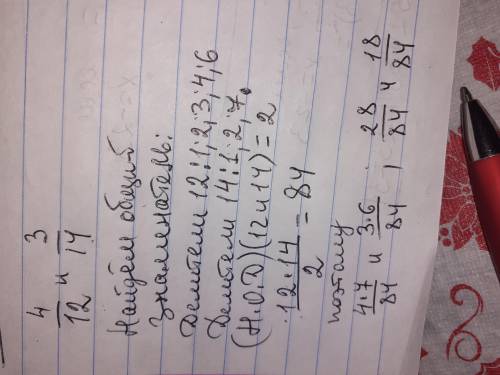 4/12 и 3/14
Найдём общий
знаменатель:
Делители 12:1,2,3,4,6
Делители 14:1,2,7.
(Н.О.Д)(12и14)=2
12·14/2=84
поэтому
4·7/84 и 3·6/84, 28/84 и 18/84